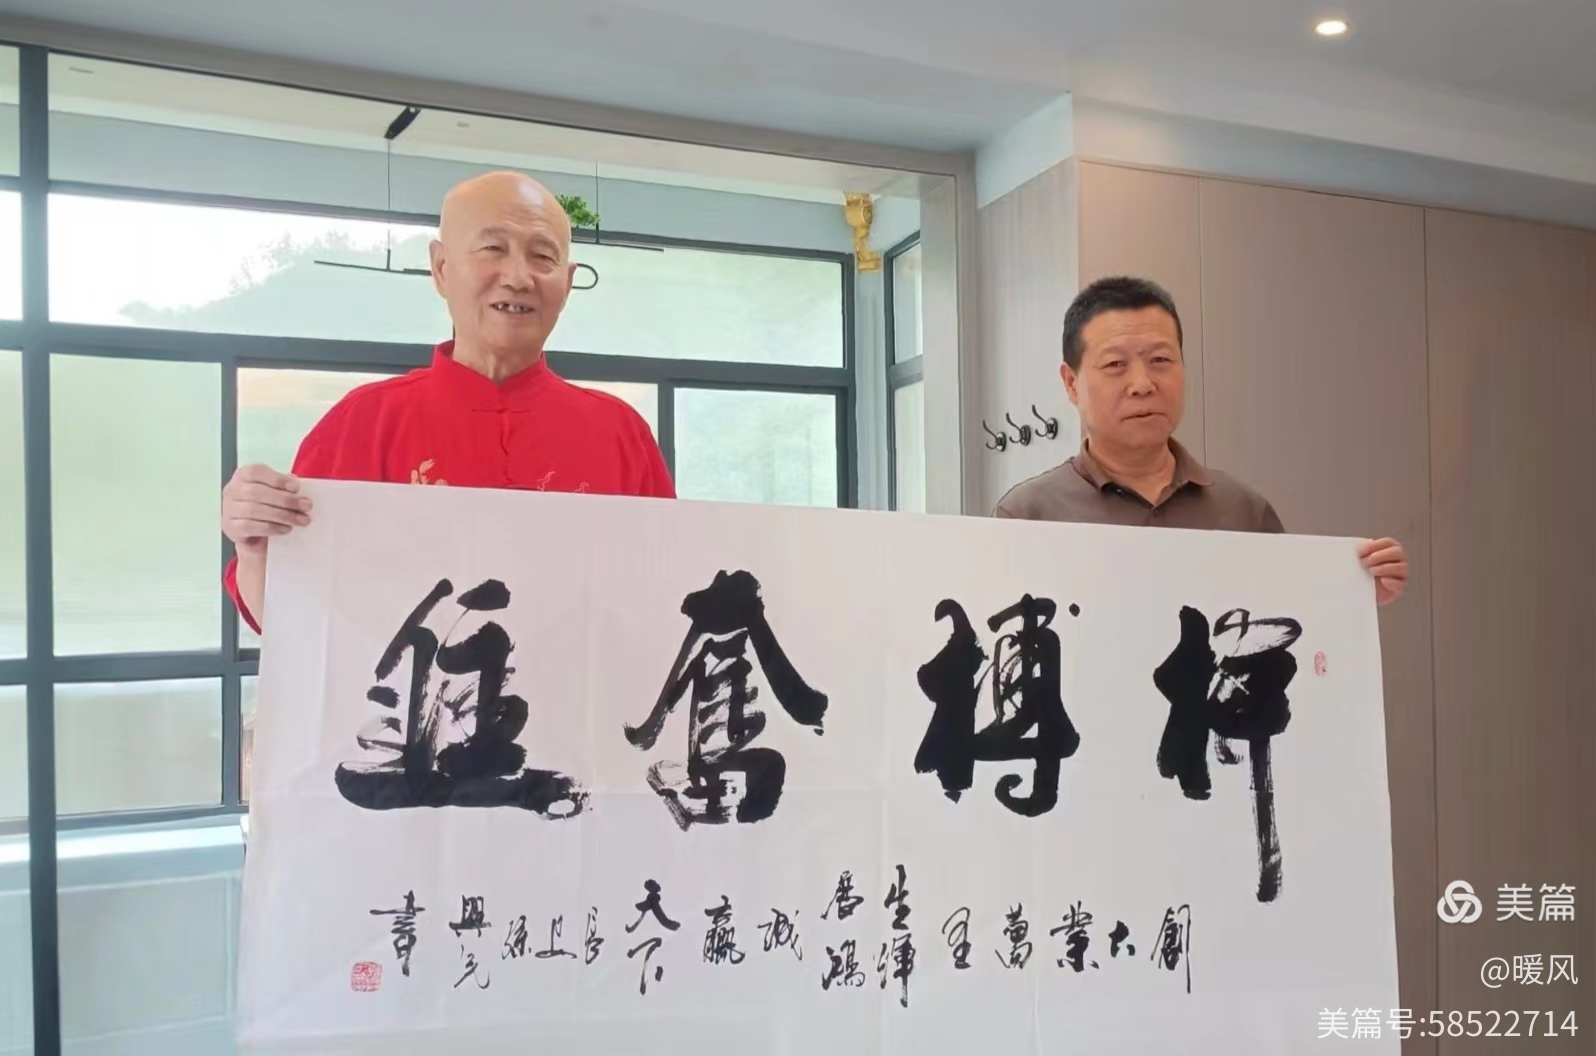 拼搏奮進
創大業萬里生輝鴻誠贏天下孫興元書
美篇
@暖风
美篇号:58522714